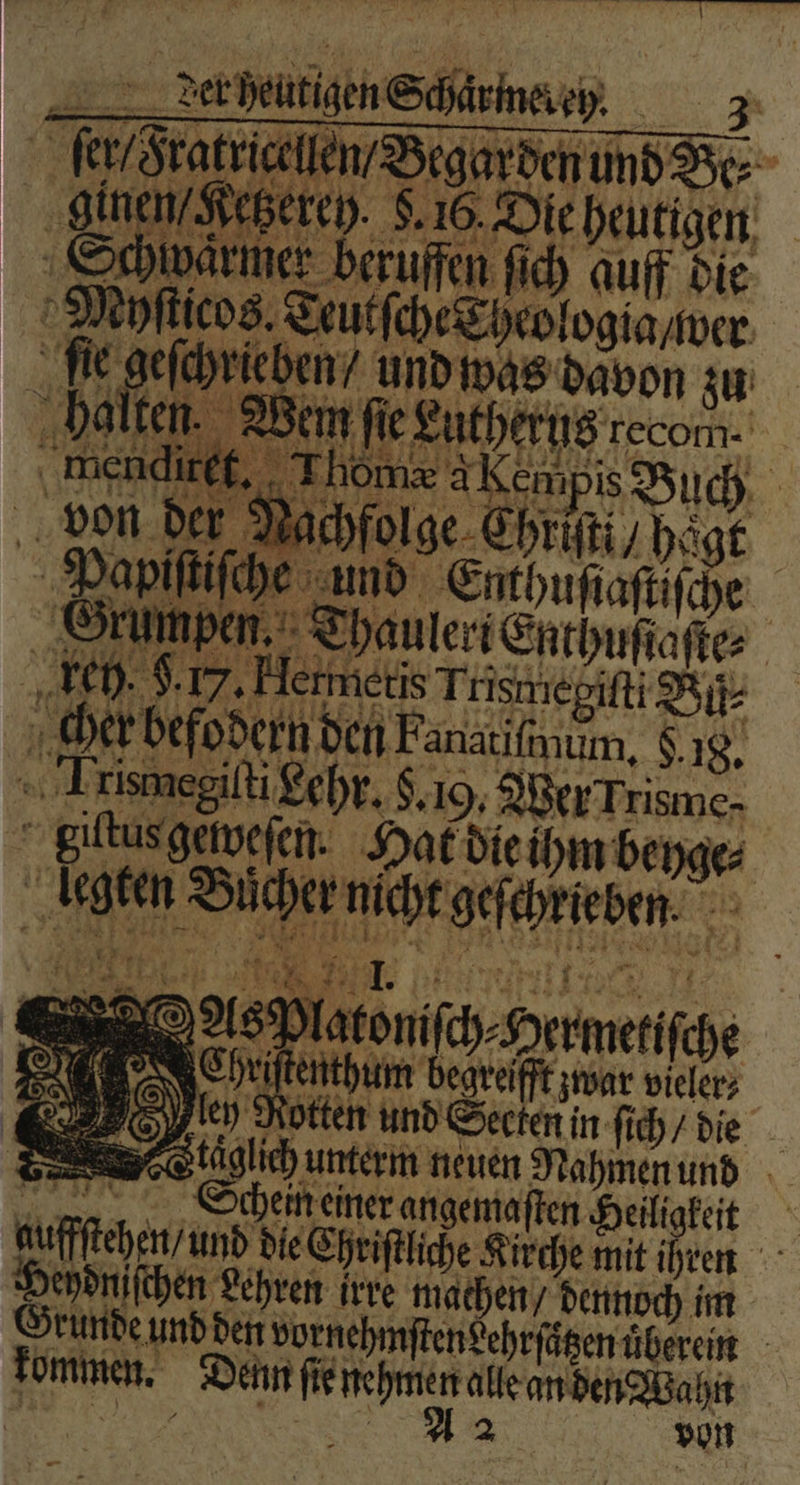 der heutigen Schärmerey. 3
ſer/Fratricellen/Begarden und Be⸗
ginen/Ketzerey. §. 16. Die heutigen
Schwaͤrmer beruffen ſich auff die
Myſticos. Teutſche Theologia/wer
ſie geſchrieben/ und was davon zu
halten. Wem ſie Lutherus recom-
mendiret. Thomæ à Kempis Buch
von der Nachfolge Chriſti/ haͤgt
Papiſtiſche und Enthuſiaſtiſche
Grumpen. Thauleri Enthuſiaſte⸗
rey. §. 17. Hermetis Trismegiſti Buͤ⸗
cher befodern den Fanatiſmum, §. 18.
Trismegiſti Lehr. §. 19. Wer Trisme-
giſtus geweſen. Hat die ihm beyge⸗
legten Buͤcher nicht geſchrieben.
I.
DAs Platoniſch⸗Hermetiſche
Chriſtenthum begreifft zwar vieler⸗
ley Rotten und Secten in ſich/ die
taͤglich unterm neuen Nahmen und
Schein einer angemaſten Heiligkeit
auffſtehen/und die Chriſtliche Kirche mit ihren
Heydniſchen Lehren irre machen/ dennoch im
Grunde und den vornehmſten Lehrſaͤtzen uͤberein
kommen. Denn ſie nehmen alle an den Wahn
A 2 von